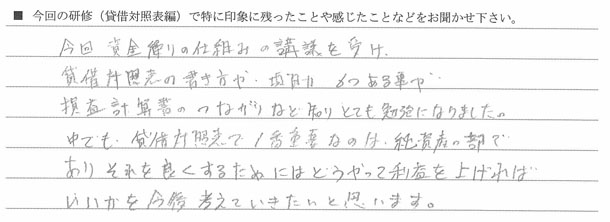 ■ 今回の研修（貸借対照表編）で特に印象に残ったことや感じたことなどをお聞かせ下さい。
今回 資金繰りの仕組みの講議を受け、
貸借対照表の書き方や、項目が 6つある事や
損益計算書のつながりなど知りとても勉強になりました。
中でも、貸借対照表で1番重要なのは、純資産の部で
ありそれを良くするためにはどうやって利益を上げれば
いいかを今後考えていきたいと思います。